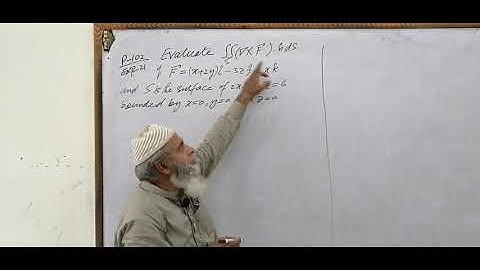 P-102 Evaluate ∬(∇×F).n̂ ds
Exp-21 if F = (x+2y)i - 3zj + xk
and S is the surface of 2x = 6
bounded by x=0, y=0 z=0